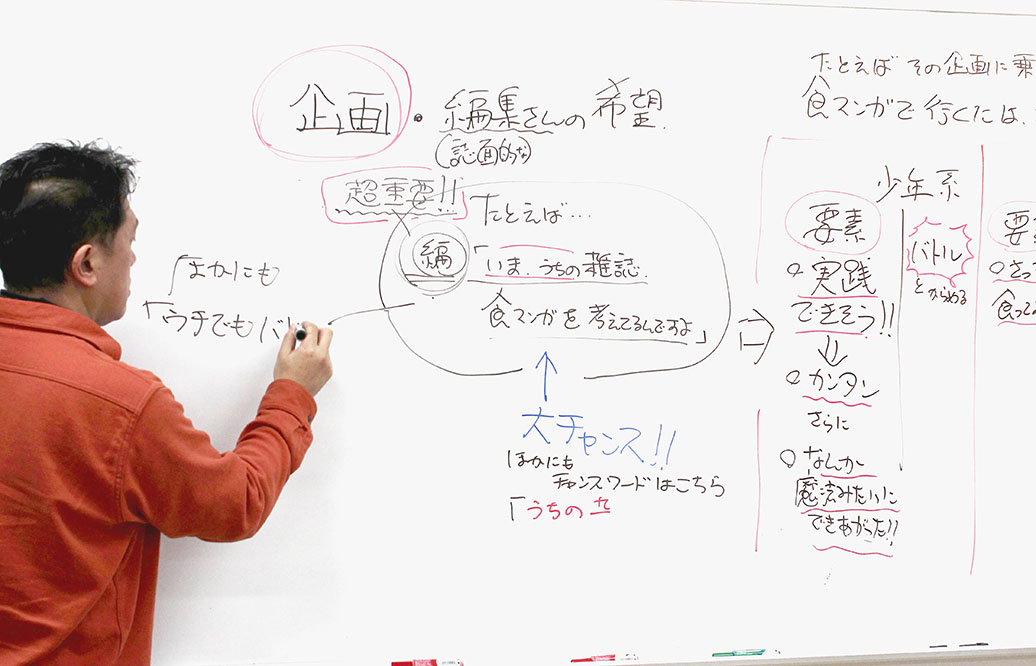 企画・編集さんの希望
(誌面的な)
超重要!!
たとえば…
編
「いま、うちの雑誌、
食マンガを考えてるんですよ」
大チャンス!!
ほかにも
チャンスワードはこちら
「うちの
ほかにも
「ウチでもバ
たとえばその企画に乗
食マンガで行くには、
少年系
要素
バトル
とからめる
○実践
できそう!!
○カンタン
さらに
○なんか
魔法みたいに
できあがった!!
要
食って